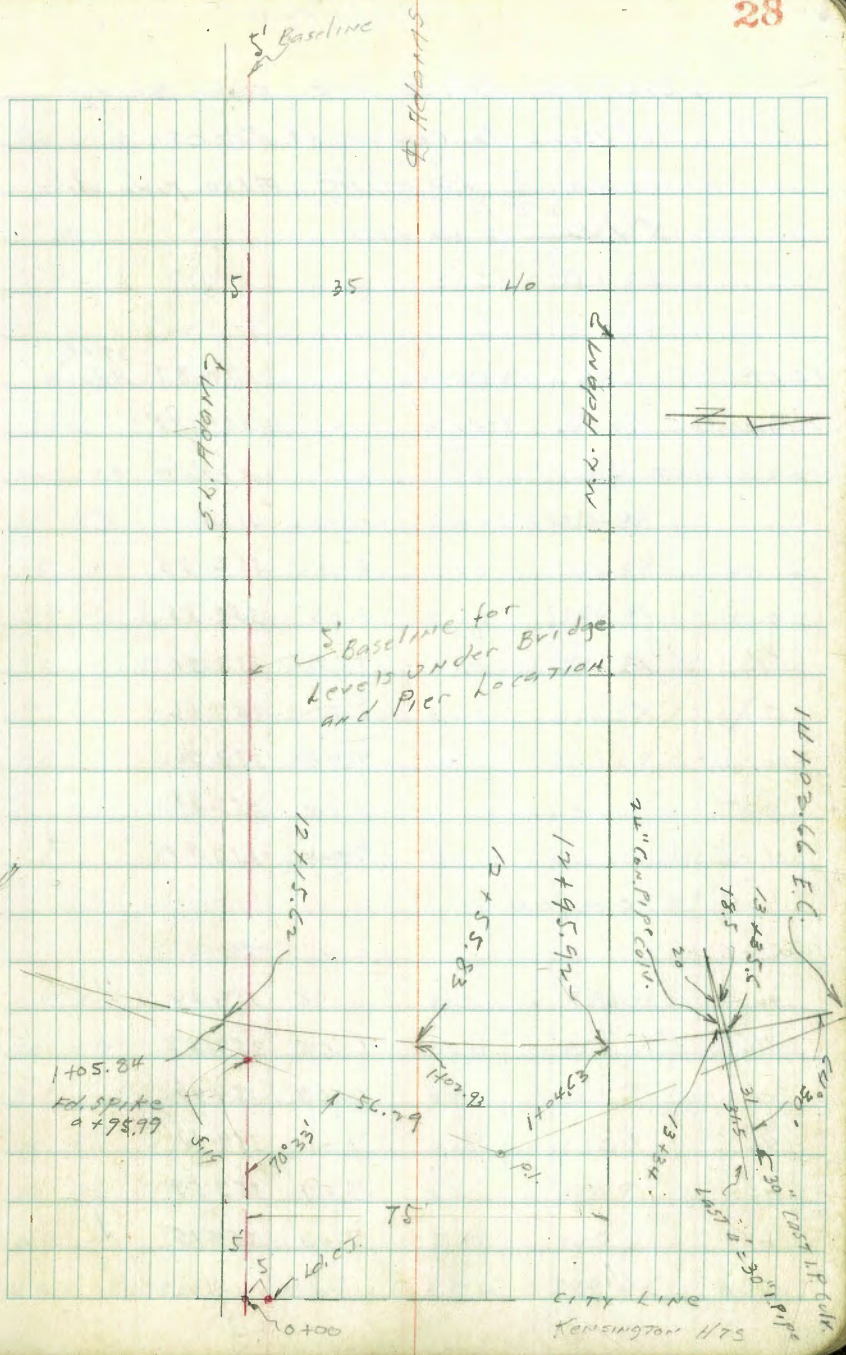 28
5' Baseline
℄ Adams
5
35
40
S.L. Adams
N.L. Adams
N
5' Baseline for
Levels under Bridge
and Pier Location
12+15.62
12+55.83
12+95.92
24" Con. Pipe Culv.
20
+8.5
13+35.5
14+02.66 E.C.
1+05.84
Fd. Spike
0+95.99
5.19
70°33'
56.29
1+02.93
P.I.
13+34
31
31.5
30"
30" Cast I.P. Culv.
Last 8' = 30" I. Pipe
75
5'
5
Ld. & T.
0+00
City Line
Kensington Hts